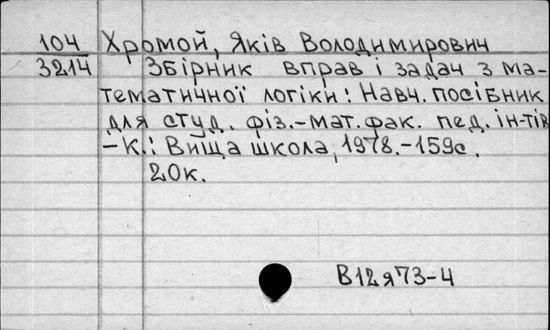 104 Хромой, Яків Володимирович
3214 Збірник вправ і задач з ма-
тематичної логіки: Навч. посібник
для студ. фіз.-мат. фак. пед. ін-тів
-К.: Вища школа, 1978.-159с.
20к.
В12я73-4